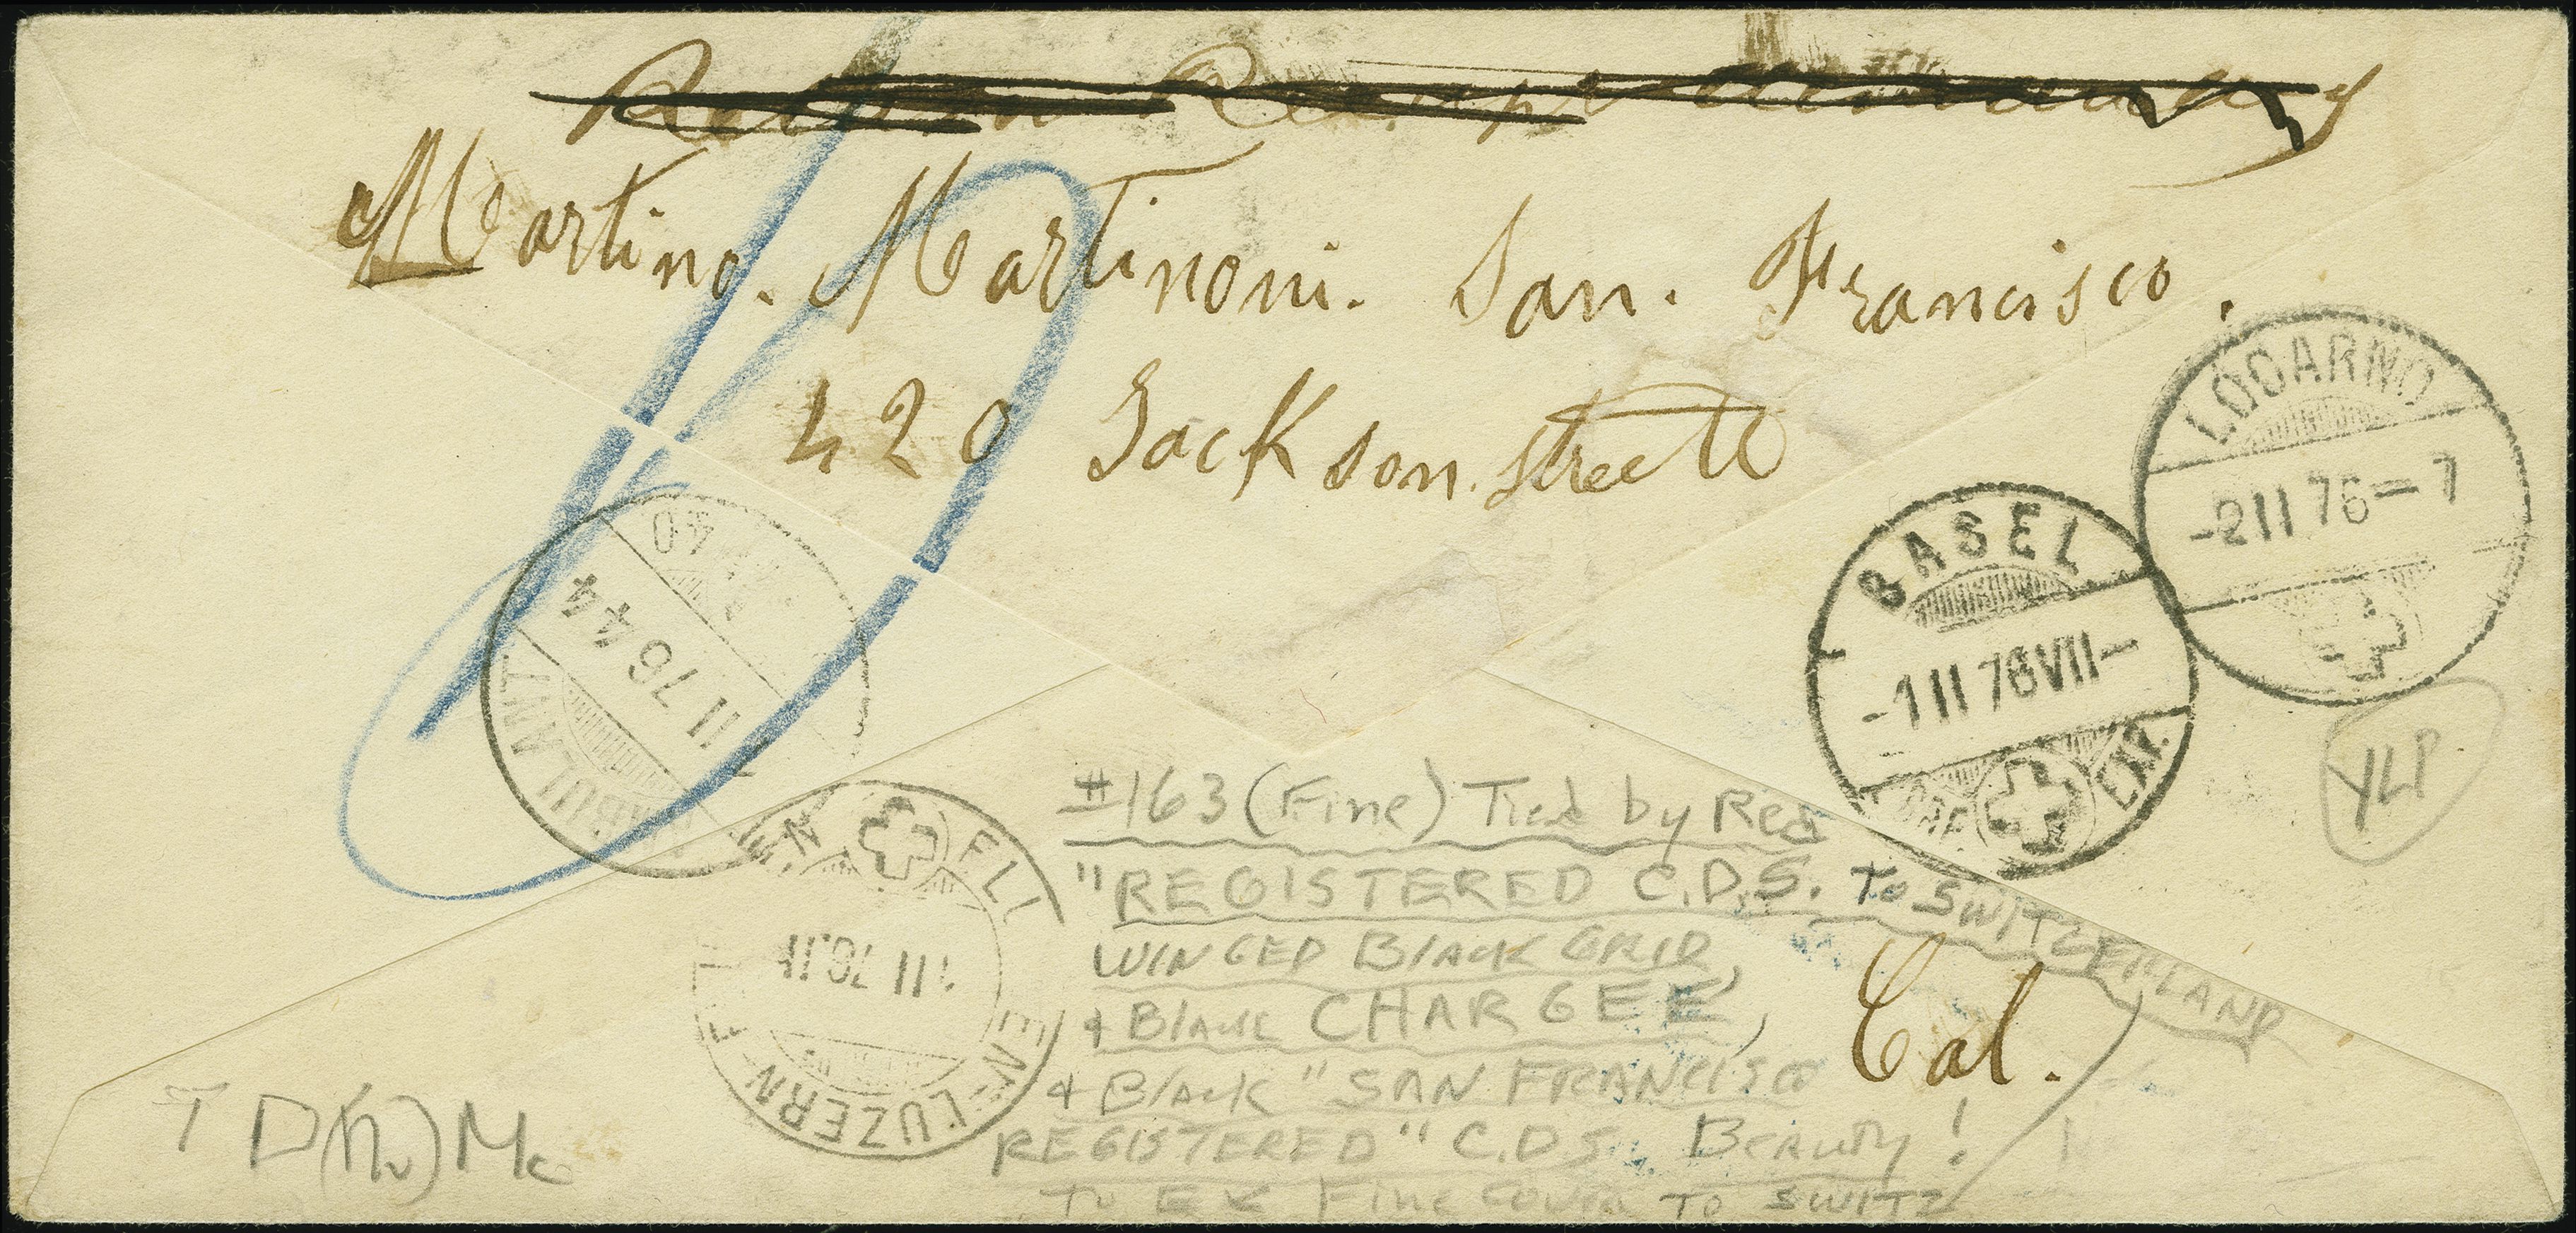 Martino. Martinoni. San. Francisco.
420 Jackson. Streett
LOCARNO
-2 II 76 — 7
BASEL
-1 II 76 VII-
EXP.
40
II 76 44
AMBULANT
YLP
#163 (Fine) Tied by Red
"REGISTERED C.D.S. To SWITZERLAND
WINGED Black GRID,
+ Black CHARGEE,
+ Black "SAN FRANCISCO
REGISTERED" C.D.S. Beauty!
Fine cover To SWITZ
Cal.
LUZERN